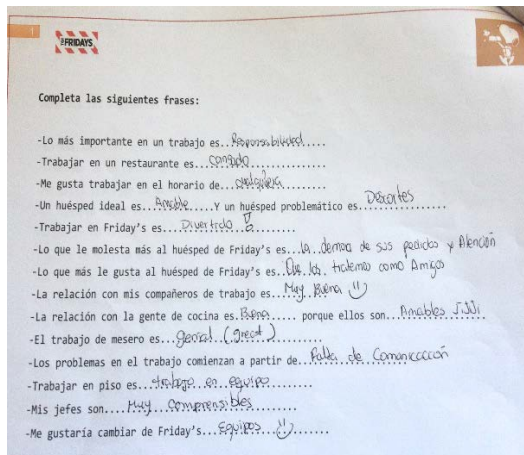 1
TGI FRIDAYS
Completa las siguientes frases:
-Lo más importante en un trabajo es..Responsabilidad.....
-Trabajar en un restaurante es...cansado.................
-Me gusta trabajar en el horario de...cualquiera.........
-Un huésped ideal es...Amable.....Y un huésped problemático es...Descortes
-Trabajar en Friday's es....Divertido !..........
-Lo que le molesta más al huésped de Friday's es...la demora de sus pedidos y Atención
-Lo que más le gusta al huésped de Friday's es..Que los tratemos como Amigos
-La relación con mis compañeros de trabajo es...Muy Buena
-La relación con la gente de cocina es.Buena..... porque ellos son...Amables
-El trabajo de mesero es...genial (great)..........
-Los problemas en el trabajo comienzan a partir de...Falta de Comunicacción
-Trabajar en piso es...trabajo en equipo..........
-Mis jefes son....Muy Comprensibles........
-Me gustaría cambiar de Friday's...Equipos.........